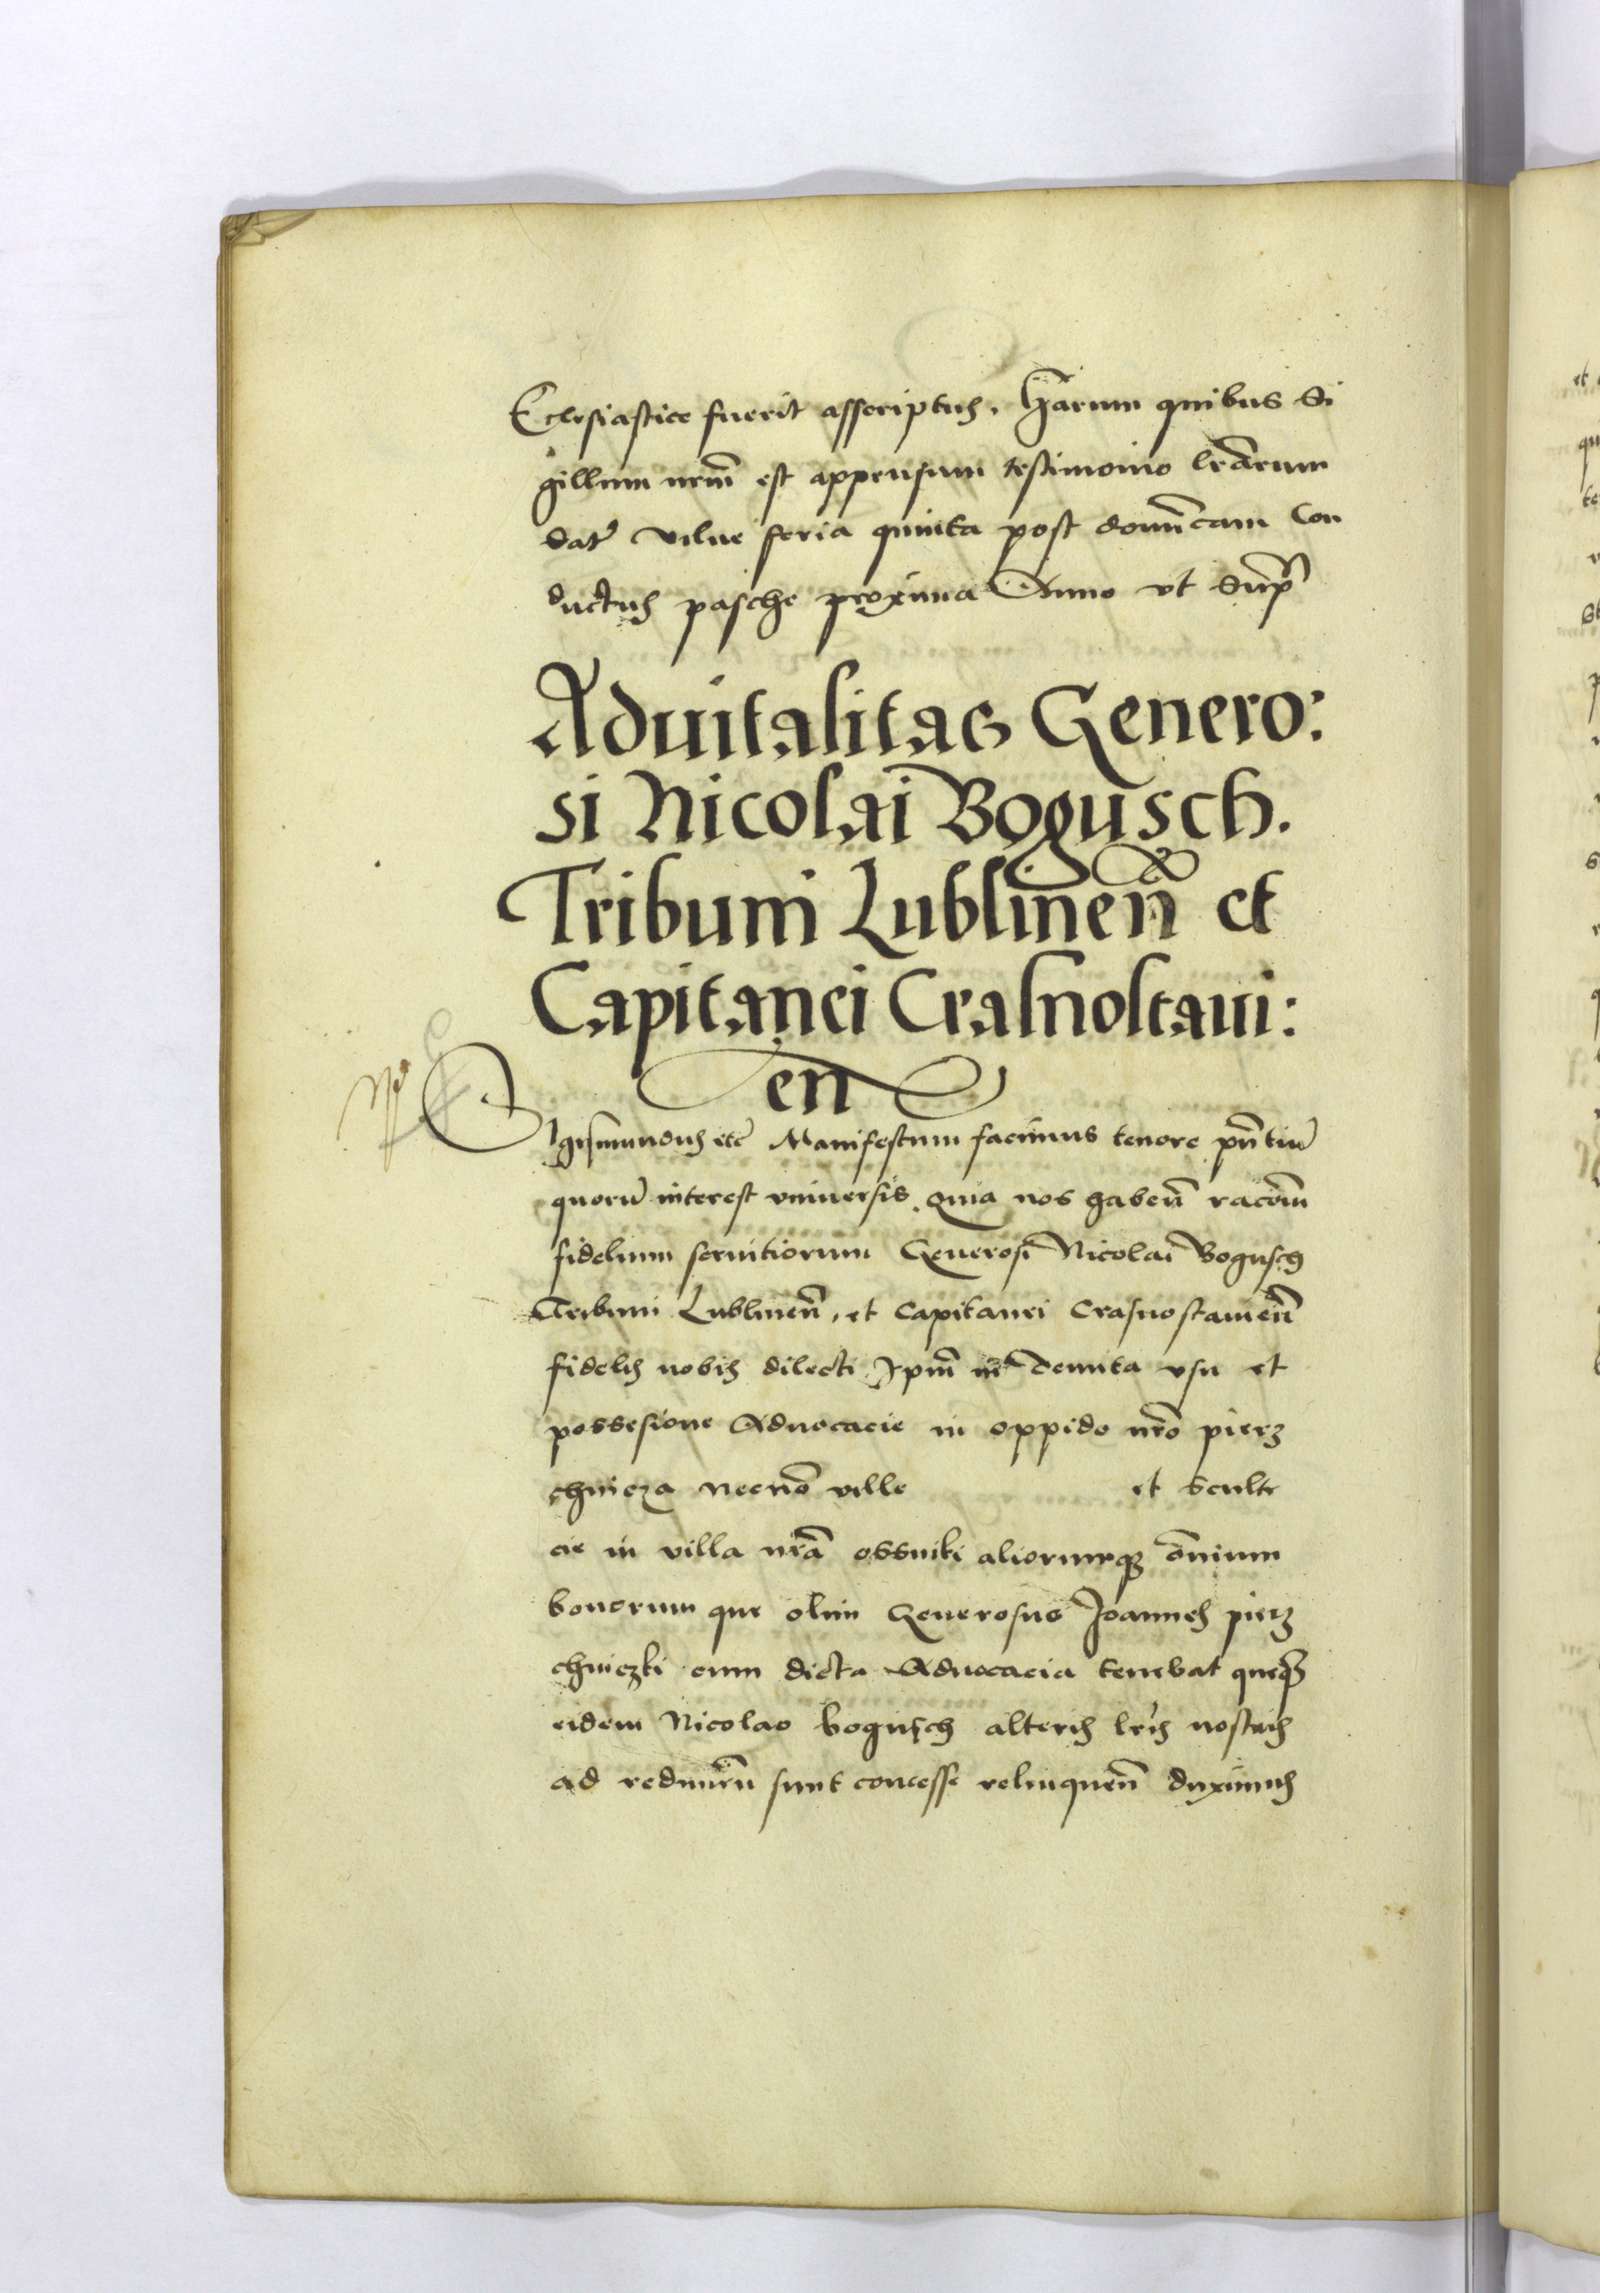 Ecclesiastice fuerit asscriptus. Harum quibus Si
gillum nrm̃ est appensum testimonio lr̃arum
dat̃ Vilne feria quinta post domĩcam Con
ductus pasche proxima Anno vt Sup̃
Aduitalitas Genero:
si Nicolai Bogusch.
Tribuni Lublineñ et
Capitanei Crasnostaui:
eñ
Sigismundus etc̃ Manifestum facimus tenore pñtiũ
quorũ interest vniuersis. Quia nos habeñ racõm
fidelium seruitiorum Generosi Nicolai Bogusch
Tribuni Lublineñ, et Capitanei Crasnostauieñ
fidelis nobis dilecti Ipm̃ in tenuta vsu et
possesione Aduocacie in oppido nrõ pierz
chnicza necnõ ville et Sculte
cie in villa nrã ossniki aliorumq3 õnium
bonorum que olim Generosus Joannes pierz
chniczki cum dicta Aduocacia tenebat queq3
eidem Nicolao bogusch alteris lrĩs nostris
ad redimeñ sunt concesse relinqueñ duximus